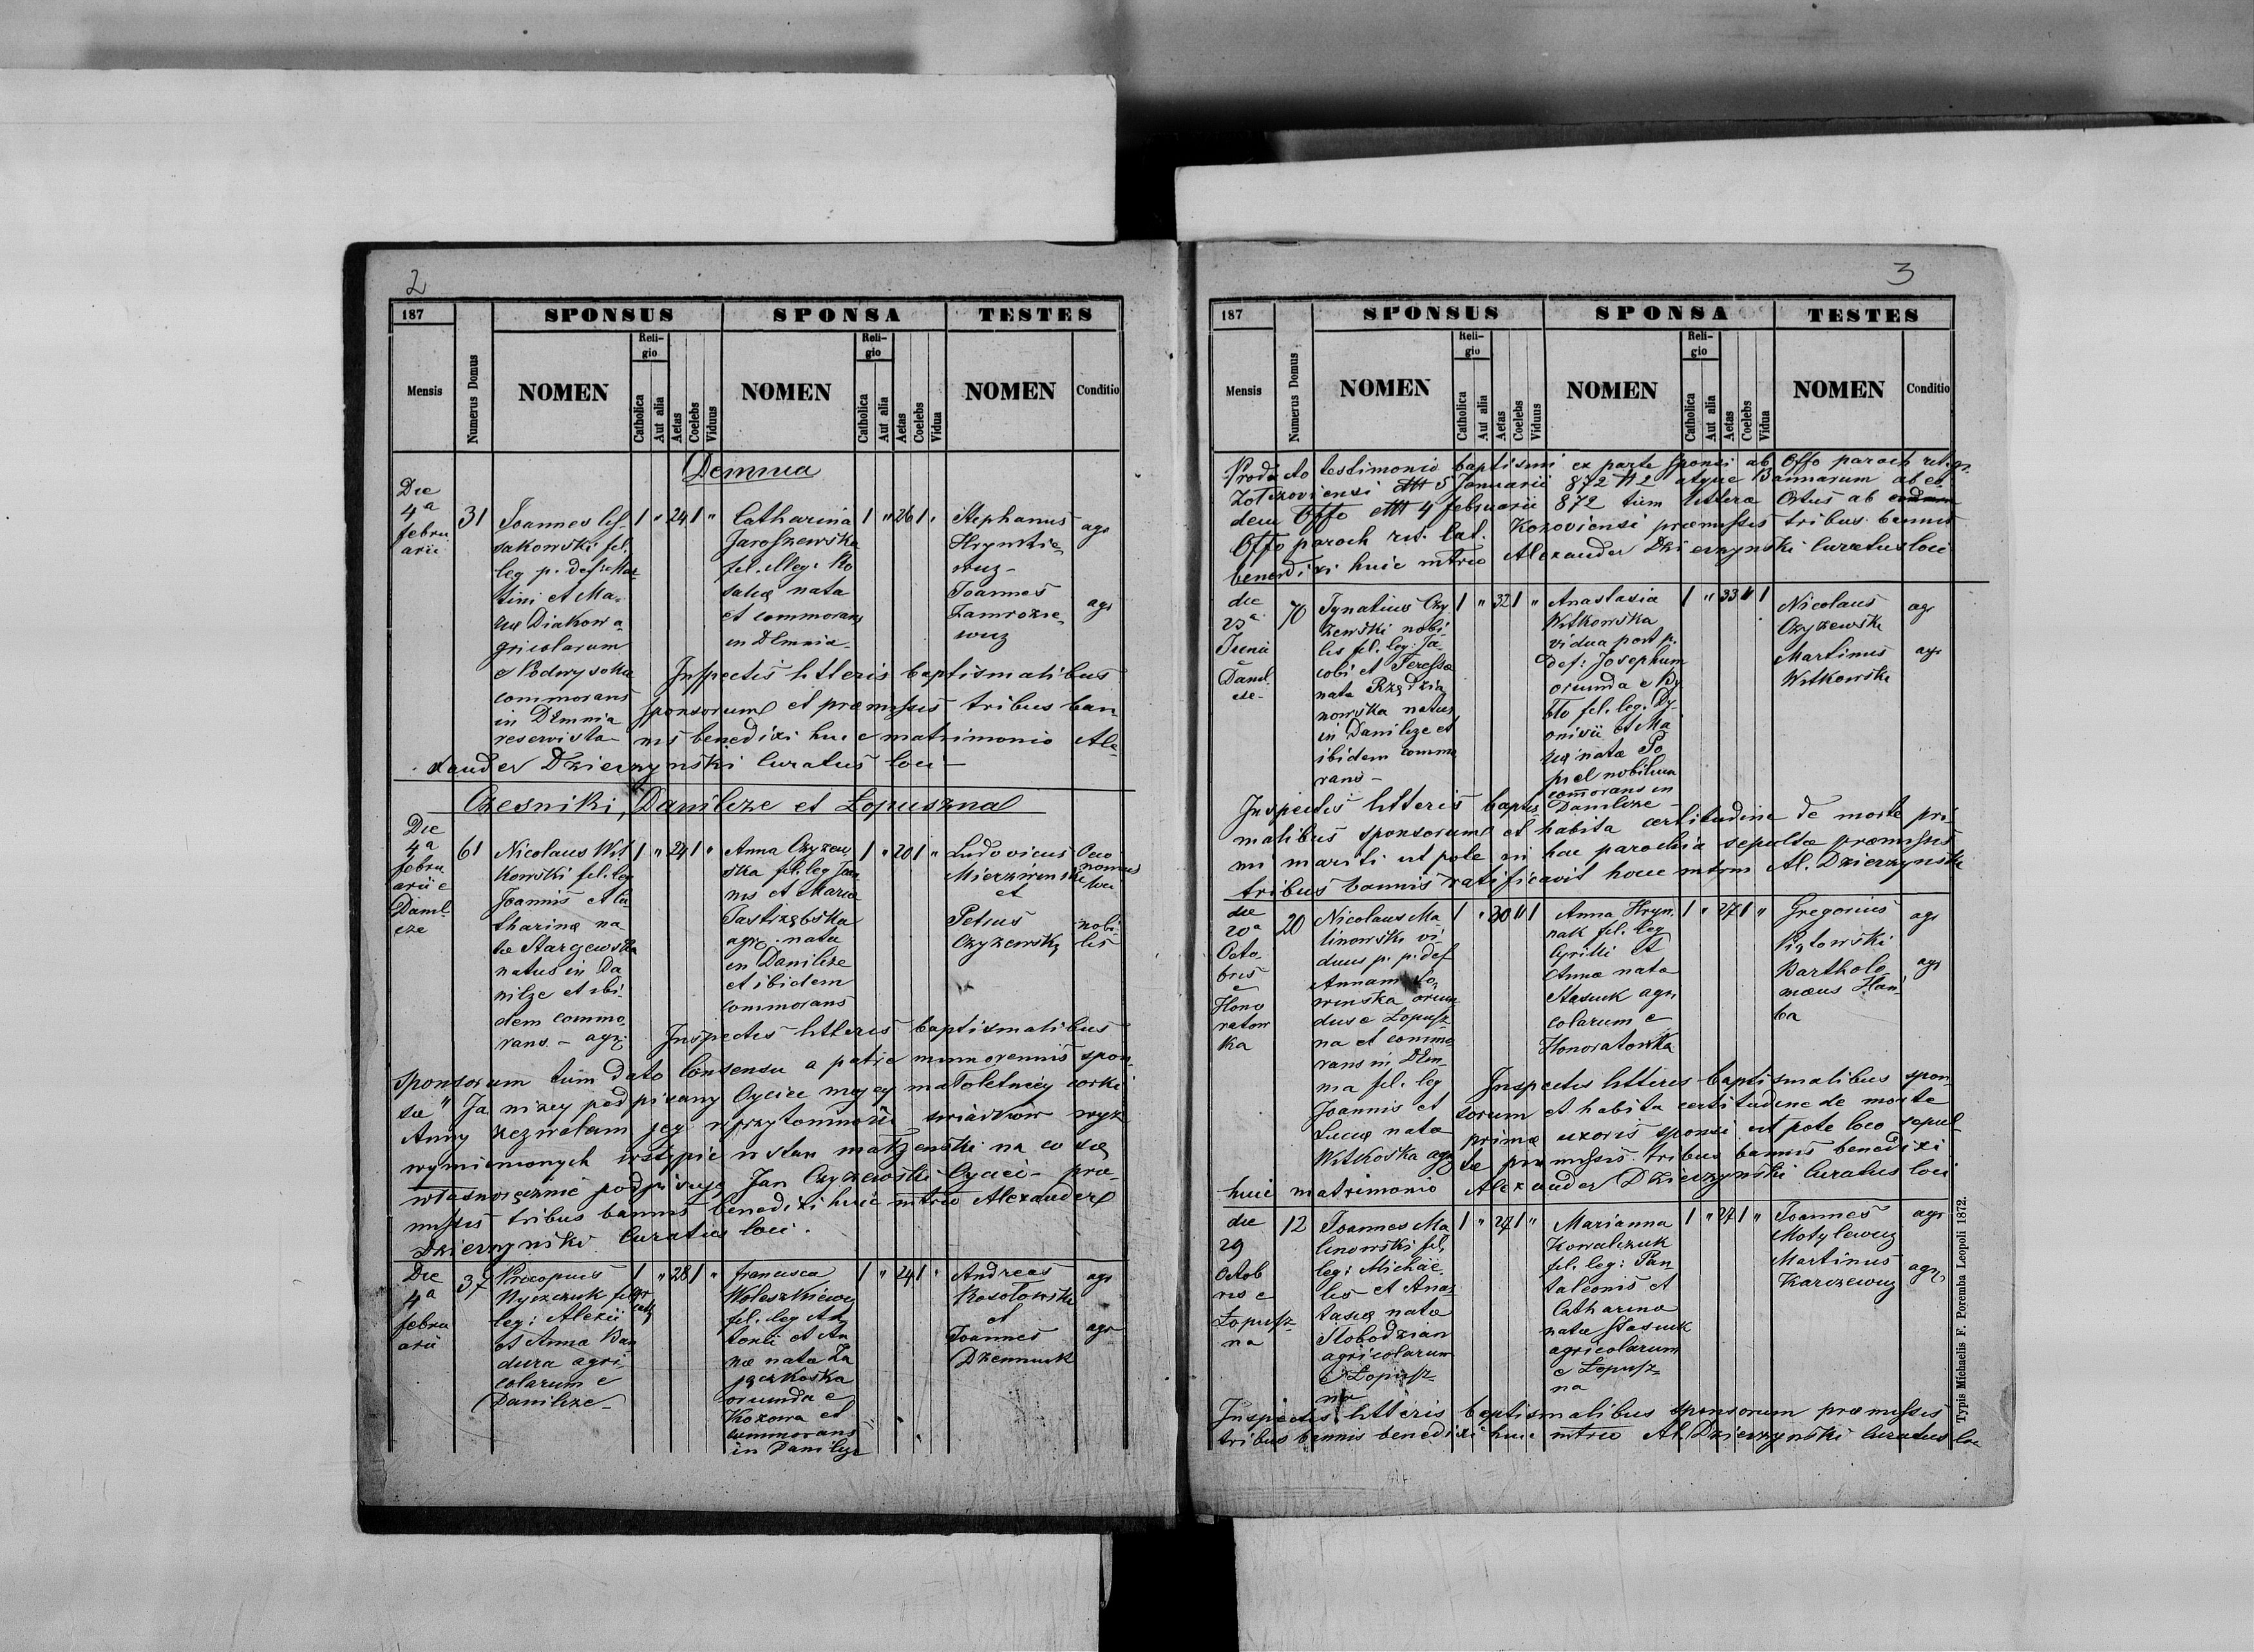 2
187
SPONSUS
SPONSA
TESTES
Mensis
Numerus Domus
NOMEN
Religio
Catholica
Aut alia
Aetas
Coelebs
Viduus
NOMEN
Religio
Catholica
Aut alia
Aetas
Coelebs
Vidua
NOMEN
Conditio
Demnia
Die
4a
febru
arii
31
Joannes
sakowski fil.
leg p. def. Mar
tini et Ma-
Diakow a-
gricolarum
e Podwysokie
commorans
in Demnia
reservista
1 " 24 1 "
Catharina
Jaroszewska
fil. illeg: Ro
saliæ nata
et commorans
in Demnia
1 " 26 1 "
Stephanus
Hrynkie-
wicz
Joannes
Zamrozie-
wicz
agr
agr
Inspectis litteris baptismalibus
sponsorum et præmissis tribus ban
nis benedixi huic matrimonio Ale-
xander Dzierzynski Curatus loci
Czesniki, Danilcze et Łopuszna
Die
4a
febru
arii e
Danil
cze
61
Nicolaus Wit
kowski fil. leg
Joannis et Ca
tharinæ na
tæ Stargewska
natus in Da
nilze et ibi-
dem commo-
rans - agr.
1 " 24 1 "
Anna Czyzew
ska fil. leg Joan
nis et Mariæ
Jastrzębska
agr. nata
in Danilcze
et ibidem
commorans
1 " 20 1 "
Ludovicus
Mierzwinski
et
Petrus
Czyzewski
Oeco
nomus
loci
nobi-
lis
Inspectis litteris baptismalibus
sponsorum tum dato Consensu a patre minorennis spon
sæ " Ja nizey podpisany Oyciec mojey małoletniéy córki
Anny zezwalam jey w przytomności swiádków wyz
wymienionych wstąpić w stan małżenski na co się
własnoręcznie podpisuję Jan Czyzewski Oyciec - præ-
missis tribus bannis benedixi huic mtrio Alexander
Dzierzynski Curatus loci.
Die
4a
febru
arii
37
Procopius
Nyczczuk fil
leg: Alexii
et Anna Ban
dura agri
colarum e
Danilcze
1 " 28 1 "
francisca
Woleszkiewicz
fil. leg An
tonii et An
næ nata Za
jączkoska
oriunda e
Kozowa et
commorans
in Danilcze
1 " 24 1 "
Andreas
Kosołowski
et
Joannes
Dzemniuk
agr
agr
3
187
SPONSUS
SPONSA
TESTES
Mensis
Numerus Domus
NOMEN
Religio
Catholica
Aut alia
Aetas
Coelebs
Viduus
NOMEN
Religio
Catholica
Aut alia
Aetas
Coelebs
Vidua
NOMEN
Conditio
Producto testimonio baptismi ex parte sponsi ab Offo paroch rit. gr.
5 Januarii 872 N 2 atque Bannorum ab eo
dem Offo 4 februarii 872 tum litteræ Ortus ab
Offo paroch rit. lat. Kozoviensi præmissis tribus bannis
benedixi huic mtrio Alexander Dzierzynski Curatus loci
die
23a
Junii
e
Danil
cze
70
Ignatius Czy
zewski nobi-
lis fil. leg. Ja-
cobi et Teressa
nata Rzędzia
nowska natus
in Danilcze et
ibidem commo
rans
1 " 32 1 "
Anastasia
Witkowska
vidua post p.
def: Josephum
oriunda e By
bło fil. leg. Dy
onisii et Ma
riæ natæ Po
piel nobilium
commorans in
Danilcze
1 " 33 " 1
Nicolaus
Czyzewski
Martinus
Witkowski
agr
agr
Inspectis litteris baptis
malibus sponsorum et habita certitudine de morte pri
mi mariti ut pote in hac parochia sepulto præmissis
tribus bannis ratificavit hocce mtrm Al. Dzierzynski
die
20a
Octo-
bris
e
Hono
ratow
ka
20
Nicolaus Ma
linowski vi-
duus p. p. def
Annam
oriun
dus e Łopusz
na et commo
rans in Dem
nia fil. leg
Joannis et
Luciæ nata
Witkoska agr
1 " 30 " 1
Anna Hryn
nak fil. leg
Cyrilli et
Annæ nata
Stasiuk agri
colarum e
Honoratowka
1 " 27 1 "
Gregorius
Piątowski
Bartholo
mæus Han
ba
agr
agr
Inspectis litteris baptismalibus spon
sorum et habita certitudine de morte
primæ uxoris sponsi ut pote loco sepul
tæ præmissis tribus bannis benedixi
huic matrimonio Alexander Dzierzynski Curatus loci
die
29
Octob
ris e
Łopusz
na
12
Joannes Ma
linowski fil.
leg: Michae
lis et Anas
tasiæ nata
Słobodzian
agricolarum
e Łopusz
na
1 " 27 1 "
Marianna
Kowalczuk
fil. leg: Pan
taleonis et
Catharina
nata Stasiuk
agricolarum
e Łopusz
na
1 " 27 1 "
Joannes
Motylewicz
Martinus
Karczewicz
agr
agr
Inspectis litteris baptismalibus sponsorum præmissis
tribus bannis benedixi huic mtrio Al. Dzierzynski Curatus loci
Typis Michaelis F. Poremba Leopoli 1872.